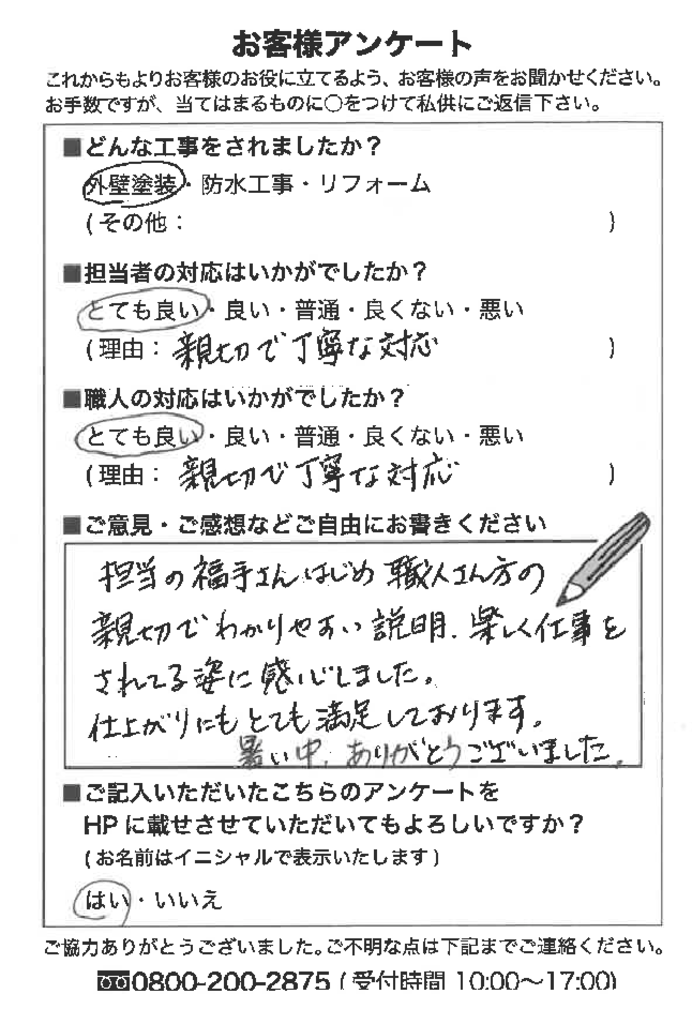 お客様アンケート
これからもよりお客様のお役に立てるよう、お客様の声をお聞かせください。
お手数ですが、当てはまるものに○をつけて私供にご返信下さい。
■どんな工事をされましたか？
外壁塗装・防水工事・リフォーム
(その他： )
■担当者の対応はいかがでしたか？
とても良い・良い・普通・良くない・悪い
(理由： 親切で丁寧な対応 )
■職人の対応はいかがでしたか？
とても良い・良い・普通・良くない・悪い
(理由： 親切で丁寧な対応 )
■ご意見・ご感想などご自由にお書きください
担当の福手さんはじめ職人さん方の
親切でわかりやすい説明、楽しく仕事を
されてる姿に感心しました。
仕上がりにもとても満足しております。
暑い中、ありがとうございました。
■ご記入いただいたこちらのアンケートを
HPに載せさせていただいてもよろしいですか？
(お名前はイニシャルで表示いたします)
はい・いいえ
ご協力ありがとうございました。ご不明な点は下記までご連絡ください。
0800-200-2875 (受付時間 10:00～17:00)